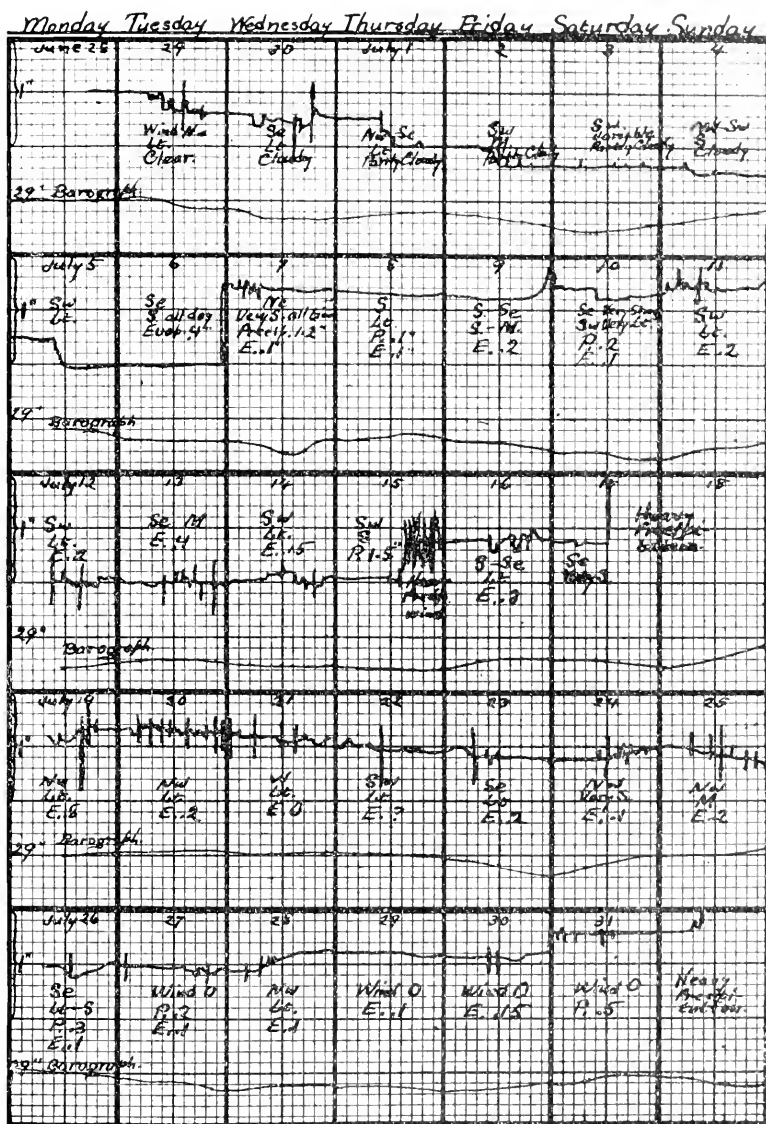 Monday Tuesday Wednesday Thursday Friday Saturday Sunday
June 28 29 30 July 1 2 3 4
1"
Wind Nw
Lt.
Clear.
Se
Lt
Cloudy
Nw-Se
Lt
Partly Cloudy
Sw
M
Sw
Variable
Partly Cloudy
Nw-Sw
S
Cloudy
29" Barograph
July 5 6 7 8 9 10 11
1"
Sw
Lt.
Se
S. all day
Evap. .4"
Ne
Very S. all
Precip. 1.2"
E. .1"
S
Lt
P. .1"
E. .1"
S-Se
S-M.
E. .2
Se Very
Sw Very Lt.
P. .2
E. .1
Sw
Lt.
E. .2
29" Barograph
July 12 13 14 15 16 17 18
1"
Sw
Lt.
E. .2
Se M
E. .4
Sw
Lt.
E. .15
Sw
S
P. 1.5"
wind
S-Se
Lt
E. .2
Se
Heavy
29" Barograph.
July 19 20 21 22 23 24 25
1"
Nw
Lt.
Nw
Lt
E. .2
W
Lt.
E. 0
Sw
Lt
E. .?
Se
Lt
E. .2
Nw
Very S.
E. .1
Nw
M
E. .2
29" Barograph.
July 26 27 28 29 30 31
1"
Se
Lt-S
P. .3
E. .1
Wind 0
P. .2
E. .1
Nw
Lt.
E. .1
Wind 0
E. .1
Wind 0
E. .15
Wind 0
P. .5
Heavy
29" Barograph.